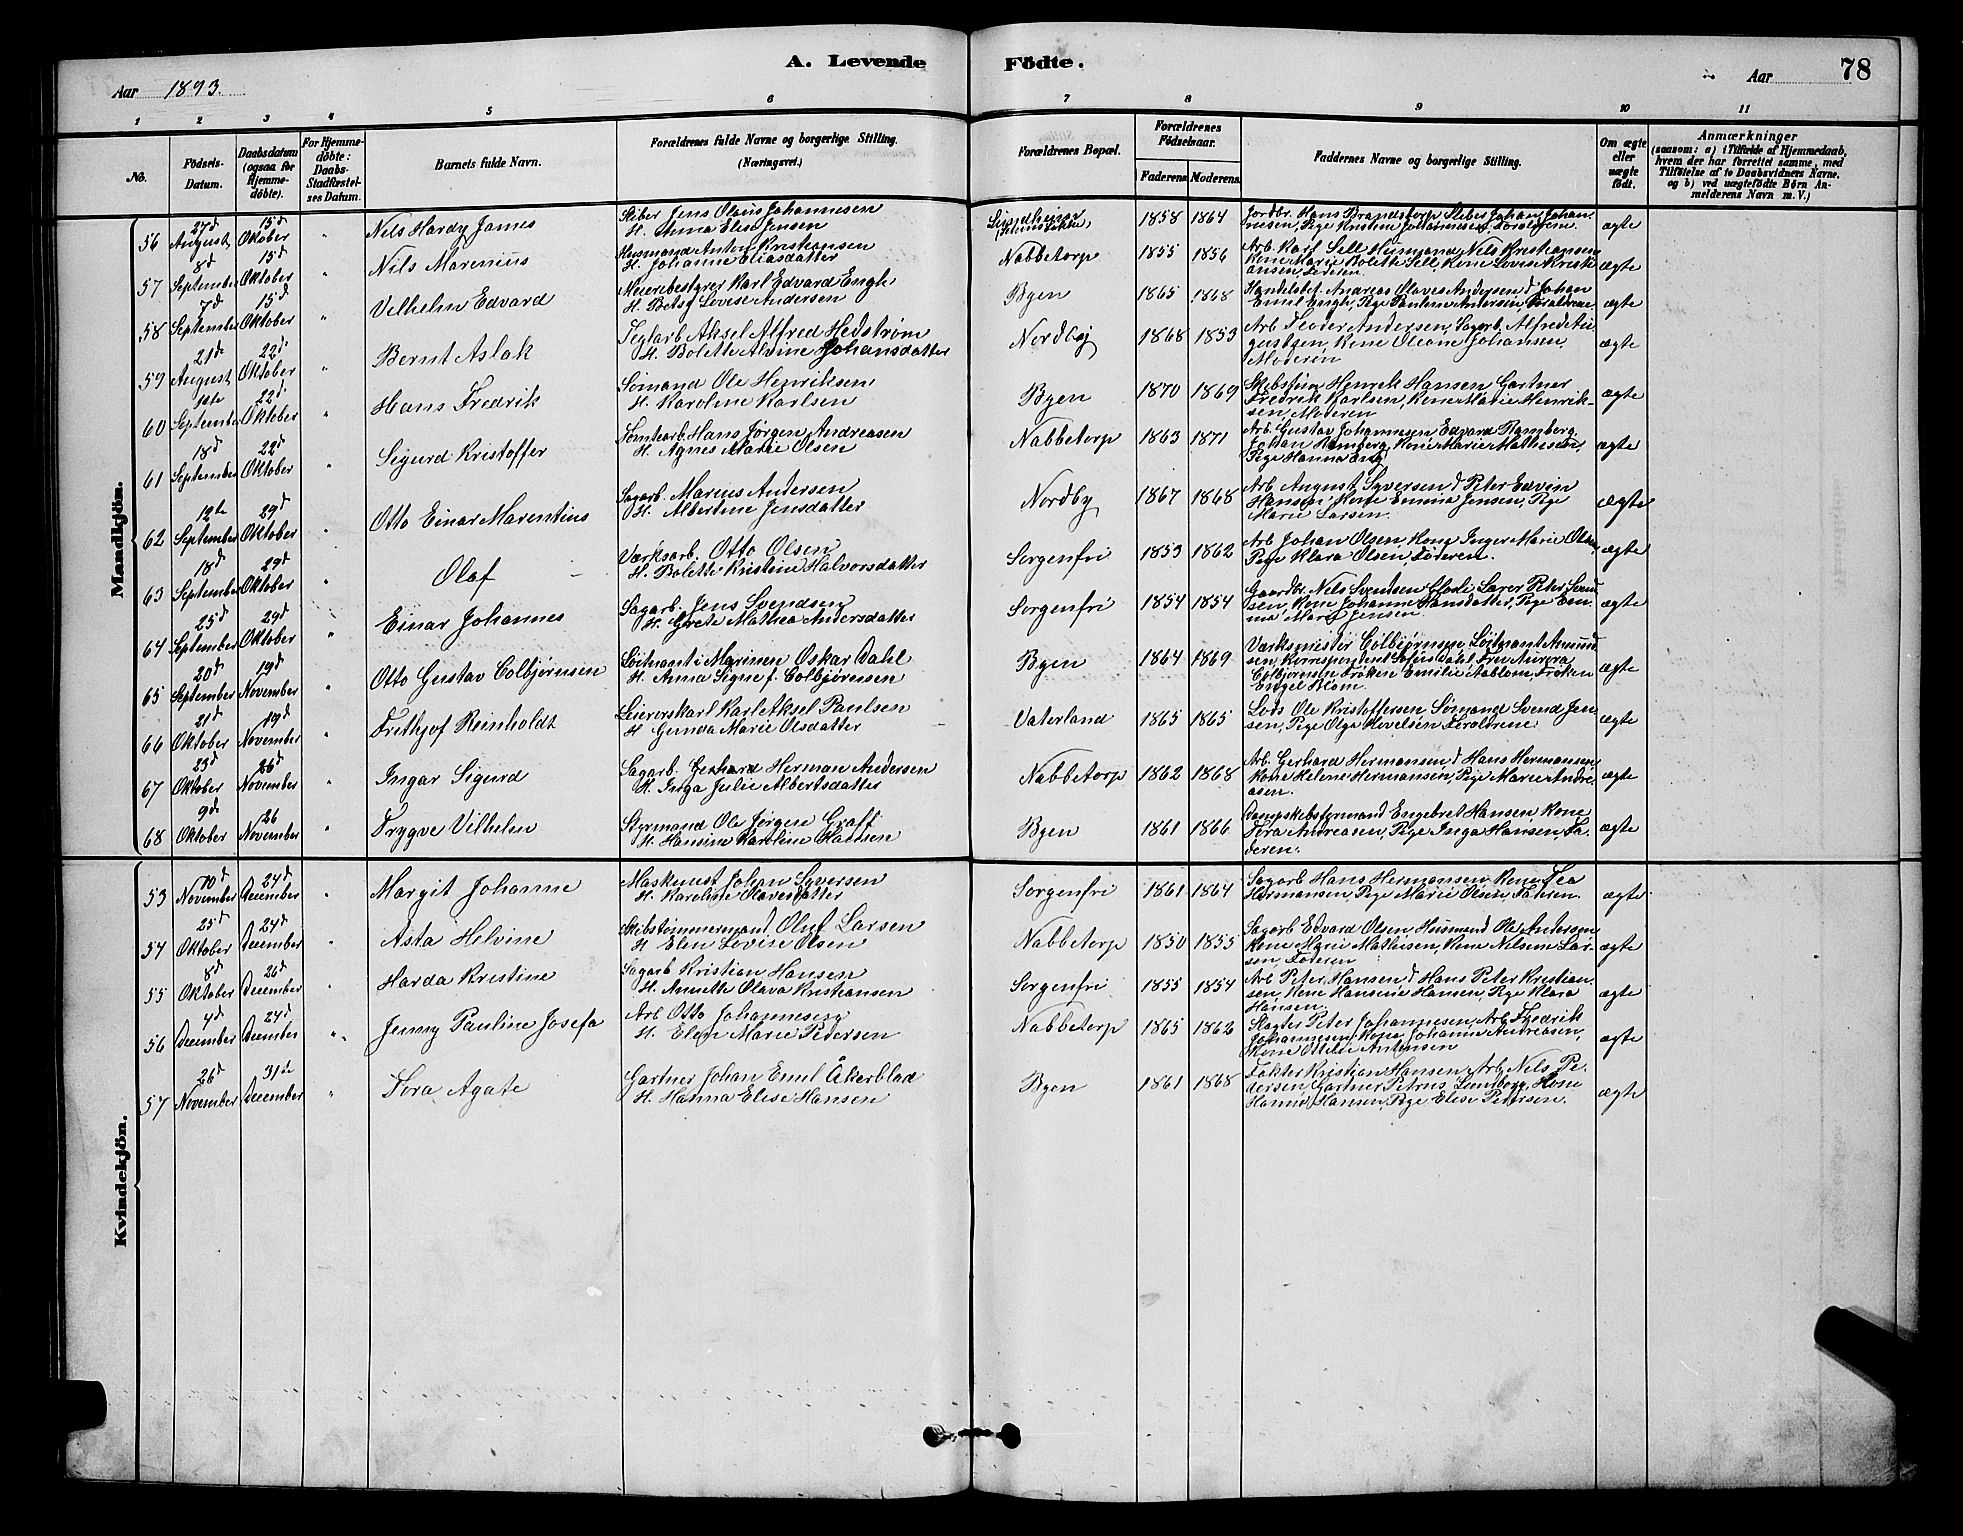 A. Levende Födte.
78
Aar 1893.
Aar
1 2 3 4 5 6 7 8 9 10 11
No.
Födsels-Datum.
Daabsdatum (ogsaa for Hjemme-döbte).
For Hjemme-döbte: Daabs-Stadfæstelses Datum.
Barnets fulde Navn.
Forældrenes fulde Navne og borgerlige Stilling. (Næringsvei.)
Forældrenes Bopæl.
Forældrenes Födselsaar.
Faderens. Moderens.
Faddernes Navne og borgerlige Stilling.
Om ægte eller uægte födt.
Anmærkninger (saasom: a) i Tilfælde af Hjemmedaab, hvem der har forrettet samme, med Tilföielse af to Daabsvidners Navne, og b) ved uægtefödte Börn Anmelderens Navn m. V.)
Mandkjön.
56 27d August 15d Oktober " Nils Hardy James Skiber Jens Olaus Johannesen H. Anna Elise Jensen 1858 1864 Jordbr. Hans Brandstorp, Skiber Johan Johannesen, Pige Kristine Johannesen, Forældrene ægte
57 8d September 15d Oktober " Nils Marenius Husmand Anton Kristiansen H. Johanne Eliasdatter Nabbetorp 1855 1856 Arb. Karl Sell Husmand Nils Kristiansen Kone Marie Bolette Sell, Kone Lovise Kristiansen, Faderen ægte
58 7d September 15d Oktober " Vilhelm Edvard Meieribestyrer Karl Edvard Engh H. Betsy Lovise Andersen Byen 1865 1868 Handelsbet. Andreas Olaves Andersen, d Johan Emil Engh, Pige Pauline Andersen, Forældrene ægte
59 21de August 22d Oktober " Bernt Aslak Teglarb. Aksel Alfred Hedstrøm H. Bolette Alvine Johansdatter Nordby 1868 1853 Arb. Theodor Andersen, Sagarb. Alfred Augustsen, Kone Oleane Johansen, Moderen ægte
60 1ste September 22d Oktober " Hans Fredrik Sømand Ole Henriksen H. Karoline Karlsen Byen 1870 1869 Skibstøm Henrik Hansen Gartner Fredrik Karlsen, Kone Marie Henriksen, Moderen ægte
61 18d September 22d Oktober " Sigurd Kristoffer Tomtearb. Hans Jørgen Andreasen H. Agnes Marie Olsen Nabbetorp 1863 1871 Arb. Gustav Johannesen, Edvard Ramberg, Johan Ramberg, Kone Marie Mathiesen, Pige Hanna Eng ægte
62 12te September 29d Oktober " Otto Einar Marentius Sagarb. Marius Andersen H. Albertine Jensdatter Nordby 1867 1868 Arb August Syversen, d Peter Edvin Hansen, Kone Emma Jensen, Pige Marie Larsen ægte
63 18d September 29d Oktober " Olaf Værksarb. Otto Olsen H. Bolette Kristine Halvorsdatter Sorgenfri 1853 1862 Arb Johan Olsen, Kone Inger Marie Olsen, Pige Klara Olsen, Faderen. ægte
64 25d September 29d Oktober " Einar Johannes Sagarb. Jens Svendsen H. Grete Mathea Andersdatter Sorgenfri 1854 1854 Gaardbr. Nils Svendsen Lærer Peter Svendsen, Kone Johanne Hansdatter, Pige Emma Marie Jensen ægte
65 20d September 19d November " Otto Gustav Colbjørnsen Løitnant i Marinen Oskar Dahl H. Anna Signe f. Colbjørnsen Byen 1864 1869 Værksmester Colbjørnsen, Løitnant Amundsen, Korrespondent Sofus Dahl, Fru Aurora Colbjørnsen Frøken Emilie Aablom, Frøken Engel Blom. ægte
66 21d Oktober 19d November " Frithjof Reinholdt Leierorskarl Karl Aksel Paulsen H. Gunda Marie Olsdatter Vaterland 1865 1865 Lods Ole Kristoffersen Sømand Svend Jensen, Pige Olga Hovelsen, Forældrene ægte
67 23d Oktober 26d November " Ingar Sigurd Sagarb. Gerhard Herman Andersen H. Inga Julie Albertsdatter Nabbetorp 1862 1868 Arb. Gerhard Hermansen, d Hans Hermansen, Kone Helene Hermansen, Pige Marie Andreasen. ægte
68 9d Oktober 26 November " Trygve Vilhelm Styrmand Ole Jørgen Graff H. Hansine Karoline Hansen Byen 1861 1866 Dampskibsformand Engebret Hansen Kone Thora Andreasen, Pige Inga Hansen, Faderen. ægte
Kvindekjön.
53 10d November 24d December " Margit Johanne Maskinist Johan Syversen H. Karoline Olavesdatter Sorgenfri 1861 1864 Sagarb Hans Hermansen, Kone Thea Hermansen, Pige Marie Olsen, Faderen. ægte
54 25d Oktober 24d December " Asta Helvine Skibstømmermand Oluf Larsen H. Elen Lovise Olsen Nabbetorp 1850 1855 Sagarb Edvard Olsen Husmand Ole Antonsen Kone Marie Mathisen, Kone Nilsine Larsen, Faderen ægte
55 8d Oktober 26d December " Harda Kristine Sagarb Kristian Hansen H. Annette Olava Kristiansen Sorgenfri 1855 1854 Arb Peter Hansen, d Hans Peter Kristiansen, Kone Hansine Hansen, Pige Klara Hansen ægte
56 4d December 24d December " Jenny Pauline Josefa Arb Otto Johannesen H. Elen Marie Pedersen Nabbetorp 1865 1862 Slagter Peter Johannesen, Arb. Fredrik Johannesen, Kone Johanne Andreasen, Kone Ottilie Antonsen ægte
57 26d November 31te December " Tora Agate Gartner Johan Emil Åkerblad H. Hanna Elise Hansen Byen 1861 1868 Kristian Hansen Arb. Nils Pedersen, Gartner Petrus Lundborg, Kone Hanna Hansen, Pige Elise Pedersen. ægte